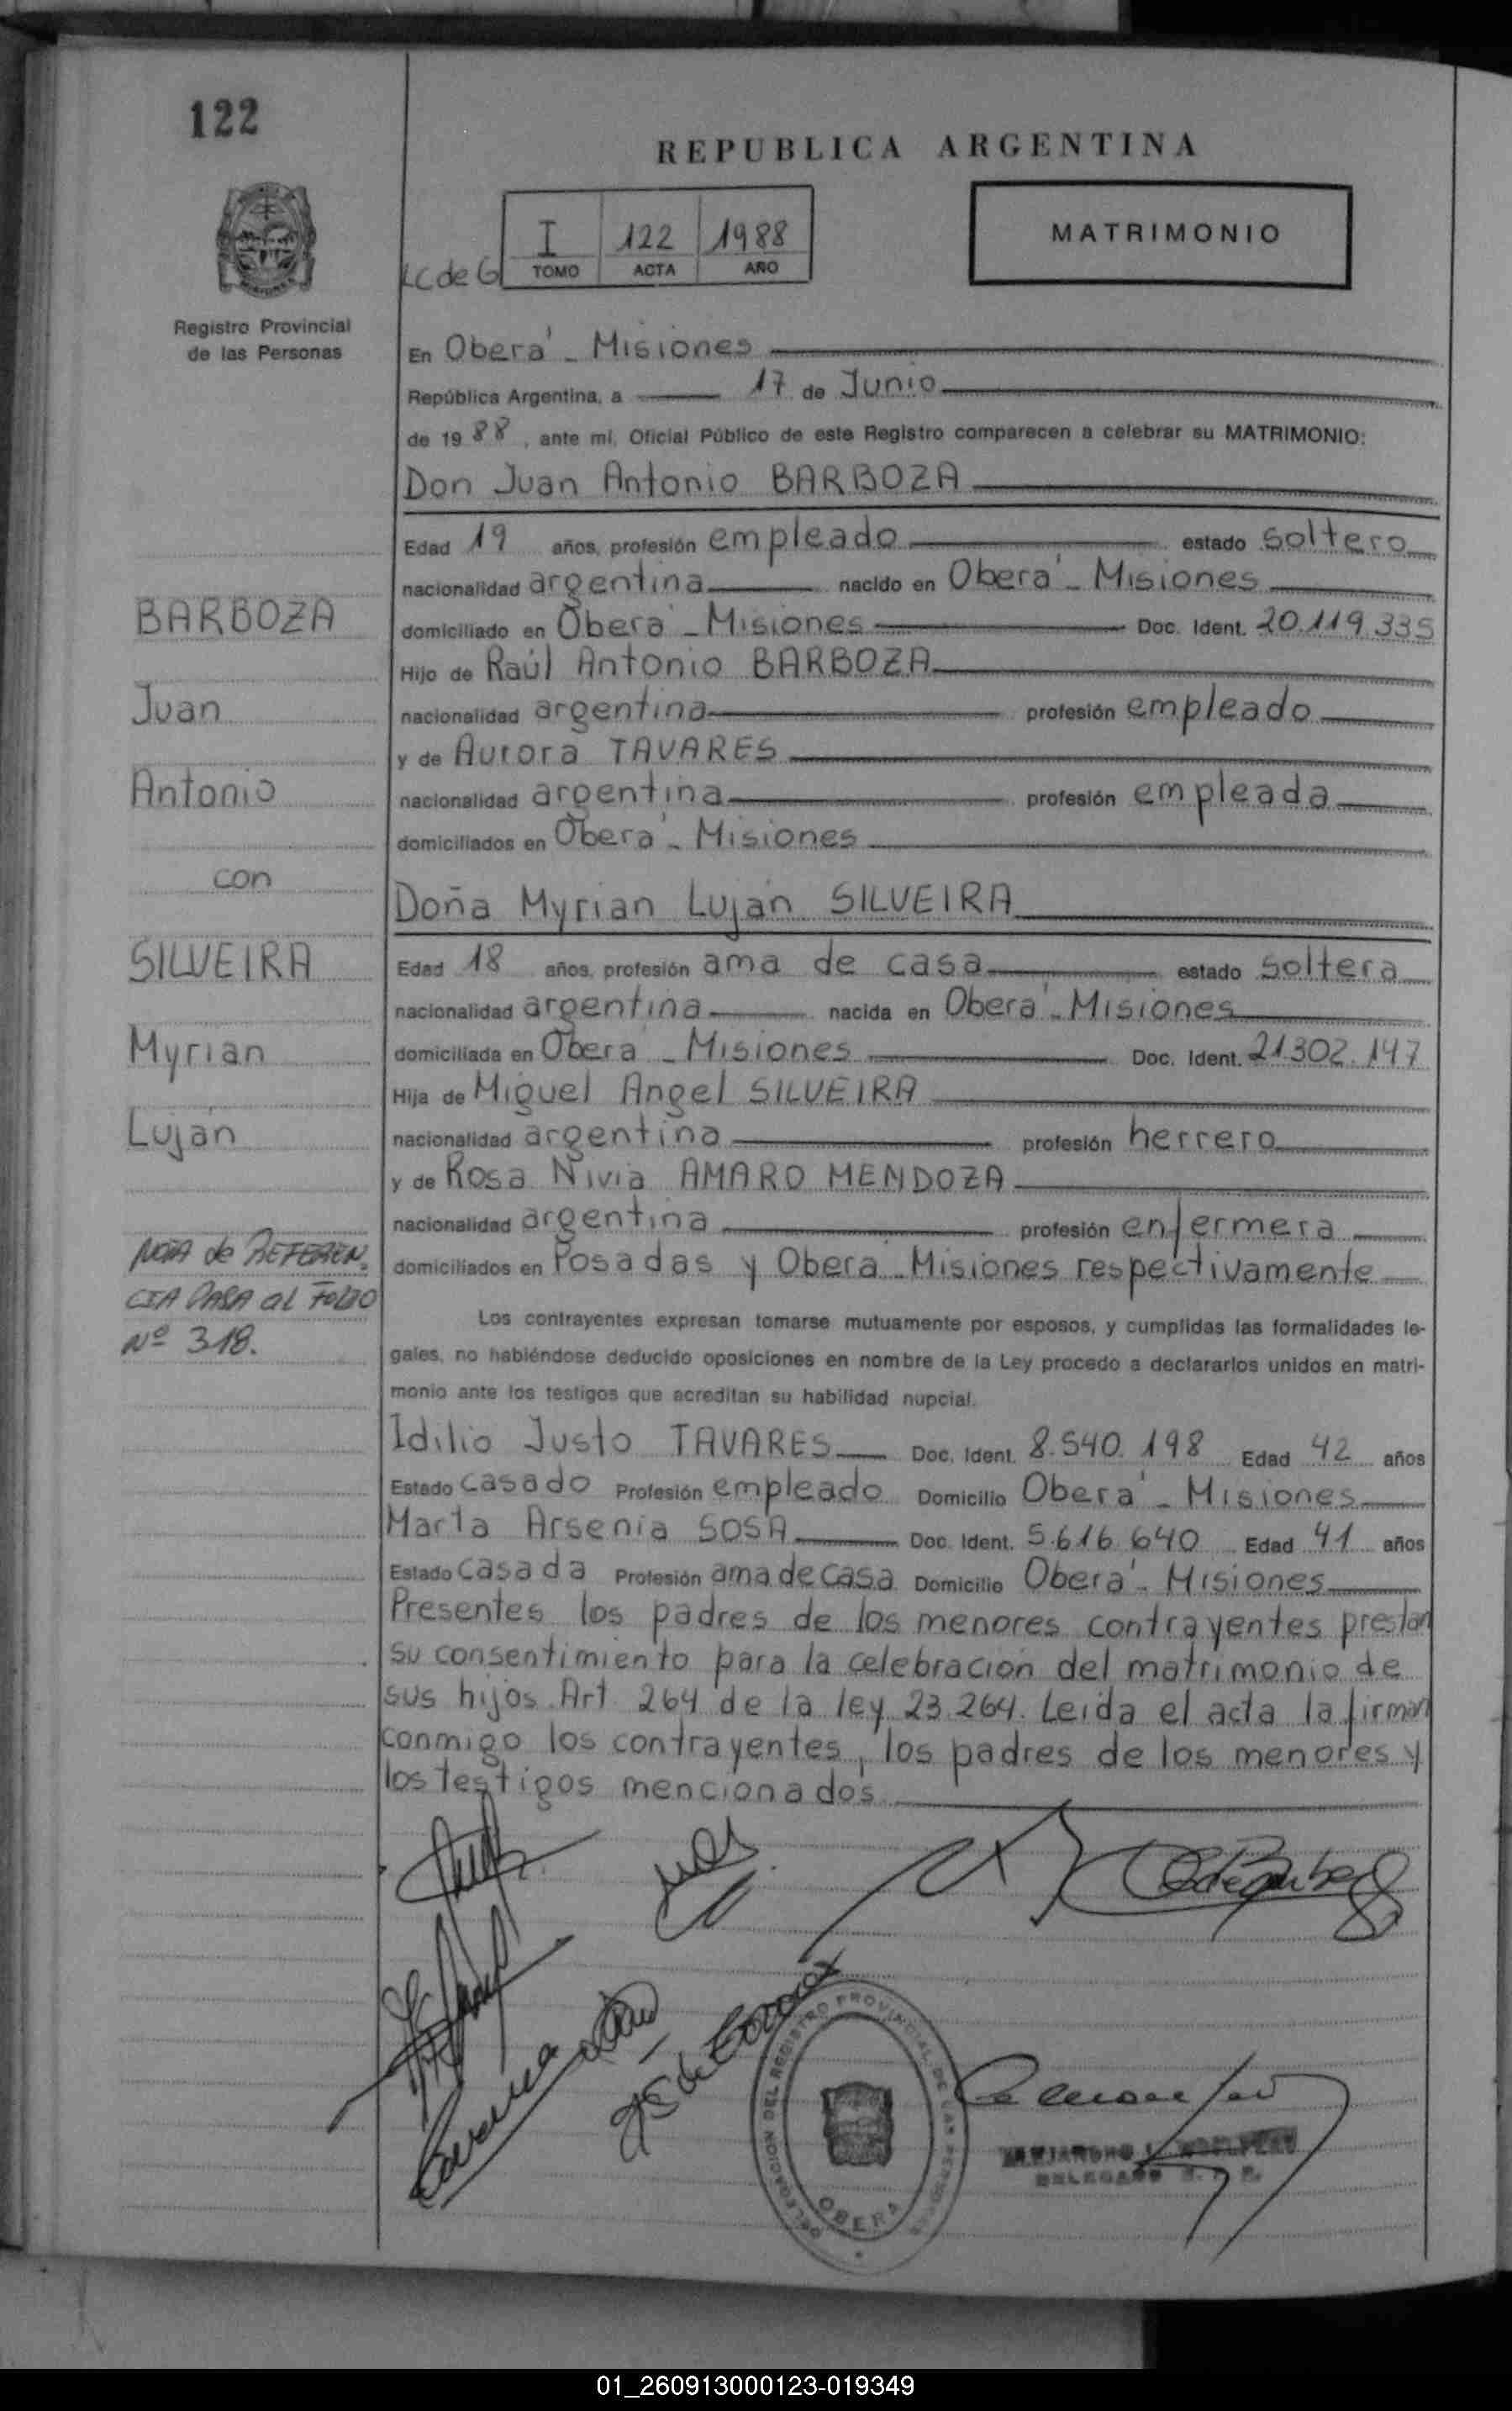 122
REPUBLICA ARGENTINA
I 122 1988
LC de G TOMO ACTA AÑO
MATRIMONIO
Registro Provincial
de las Personas
En Oberá - Misiones
República Argentina, a 17 de Junio
de 19 88, ante mi, Oficial Público de este Registro comparecen a celebrar su MATRIMONIO:
Don Juan Antonio BARBOZA
Edad 19 años, profesión empleado estado soltero
nacionalidad argentina nacido en Oberá - Misiones
domiciliado en Oberá - Misiones Doc. Ident. 20.119.335
Hijo de Raúl Antonio BARBOZA
nacionalidad argentina profesión empleado
y de Aurora TAVARES
nacionalidad argentina profesión empleada
domiciliados en Oberá - Misiones
Doña Myrian Luján SILVEIRA
Edad 18 años, profesión ama de casa estado soltera
nacionalidad argentina nacida en Oberá - Misiones
domiciliada en Obera - Misiones Doc. Ident. 21.302.147
Hija de Miguel Angel SILVEIRA
nacionalidad argentina profesión herrero
y de Rosa Nivia AMARO MENDOZA
nacionalidad argentina profesión enfermera
domiciliados en Posadas y Oberá - Misiones respectivamente
Los contrayentes expresan tomarse mutuamente por esposos, y cumplidas las formalidades le-
gales, no habiéndose deducido oposiciones en nombre de la Ley procedo a declararlos unidos en matri-
monio ante los testigos que acreditan su habilidad nupcial.
Idilio Justo TAVARES Doc. Ident. 8.540.198 Edad 42 años
Estado casado Profesión empleado Domicilio Oberá - Misiones
Marta Arsenia SOSA Doc. Ident. 5.616.640 Edad 41 años
Estado casada Profesión ama de casa Domicilio Oberá - Misiones
Presentes los padres de los menores contrayentes prestan
su consentimiento para la celebración del matrimonio de
sus hijos. Art 264 de la ley 23.264. Leída el acta la firman
conmigo los contrayentes, los padres de los menores y
los testigos mencionados
BARBOZA
Juan
Antonio
con
SILVEIRA
Myrian
Luján
NOTA de REFEREN.
CIA PASA al FOLIO
Nº 318.
DELEGACION DEL REGISTRO PROVINCIAL DE LAS PERSONAS
OBERA
DELEGADO
01_260913000123-019349